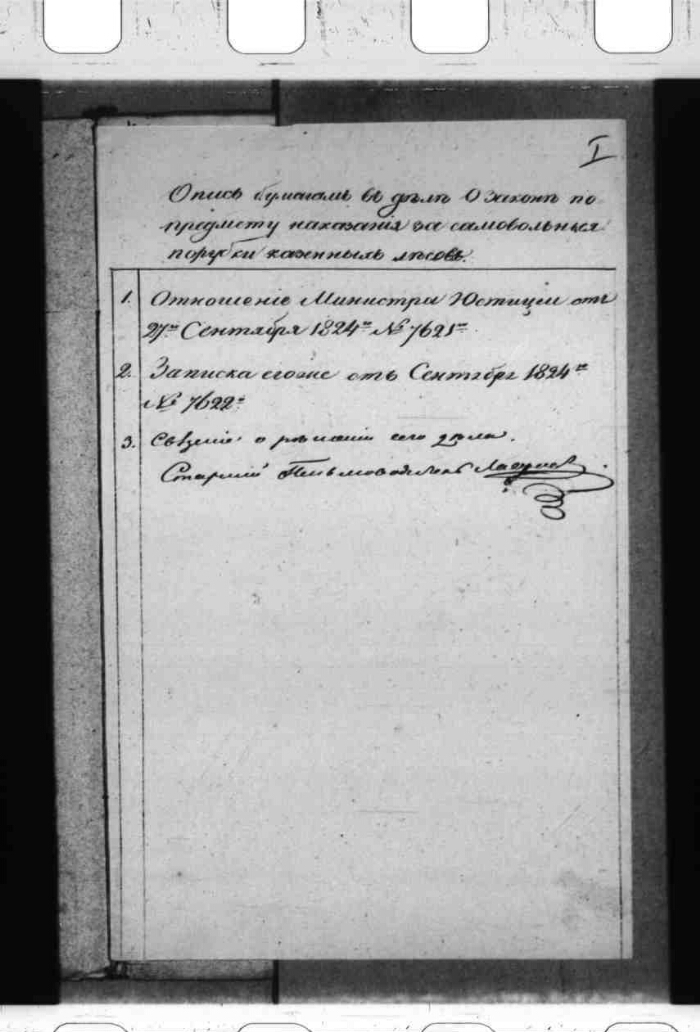 I
Опись бумагамъ въ дѣлѣ О законѣ по
предмету наказанія за самовольныя
порубки казенныхъ лѣсовъ.
1. Отношеніе Министра Юстиціи отъ
27го Сентября 1824го № 7621го
2. Записка егоже отъ Сентября 1824го
№ 7622.
3. Свѣденіе о рѣшеніи сего дѣла.
Старшій Письмоводитель